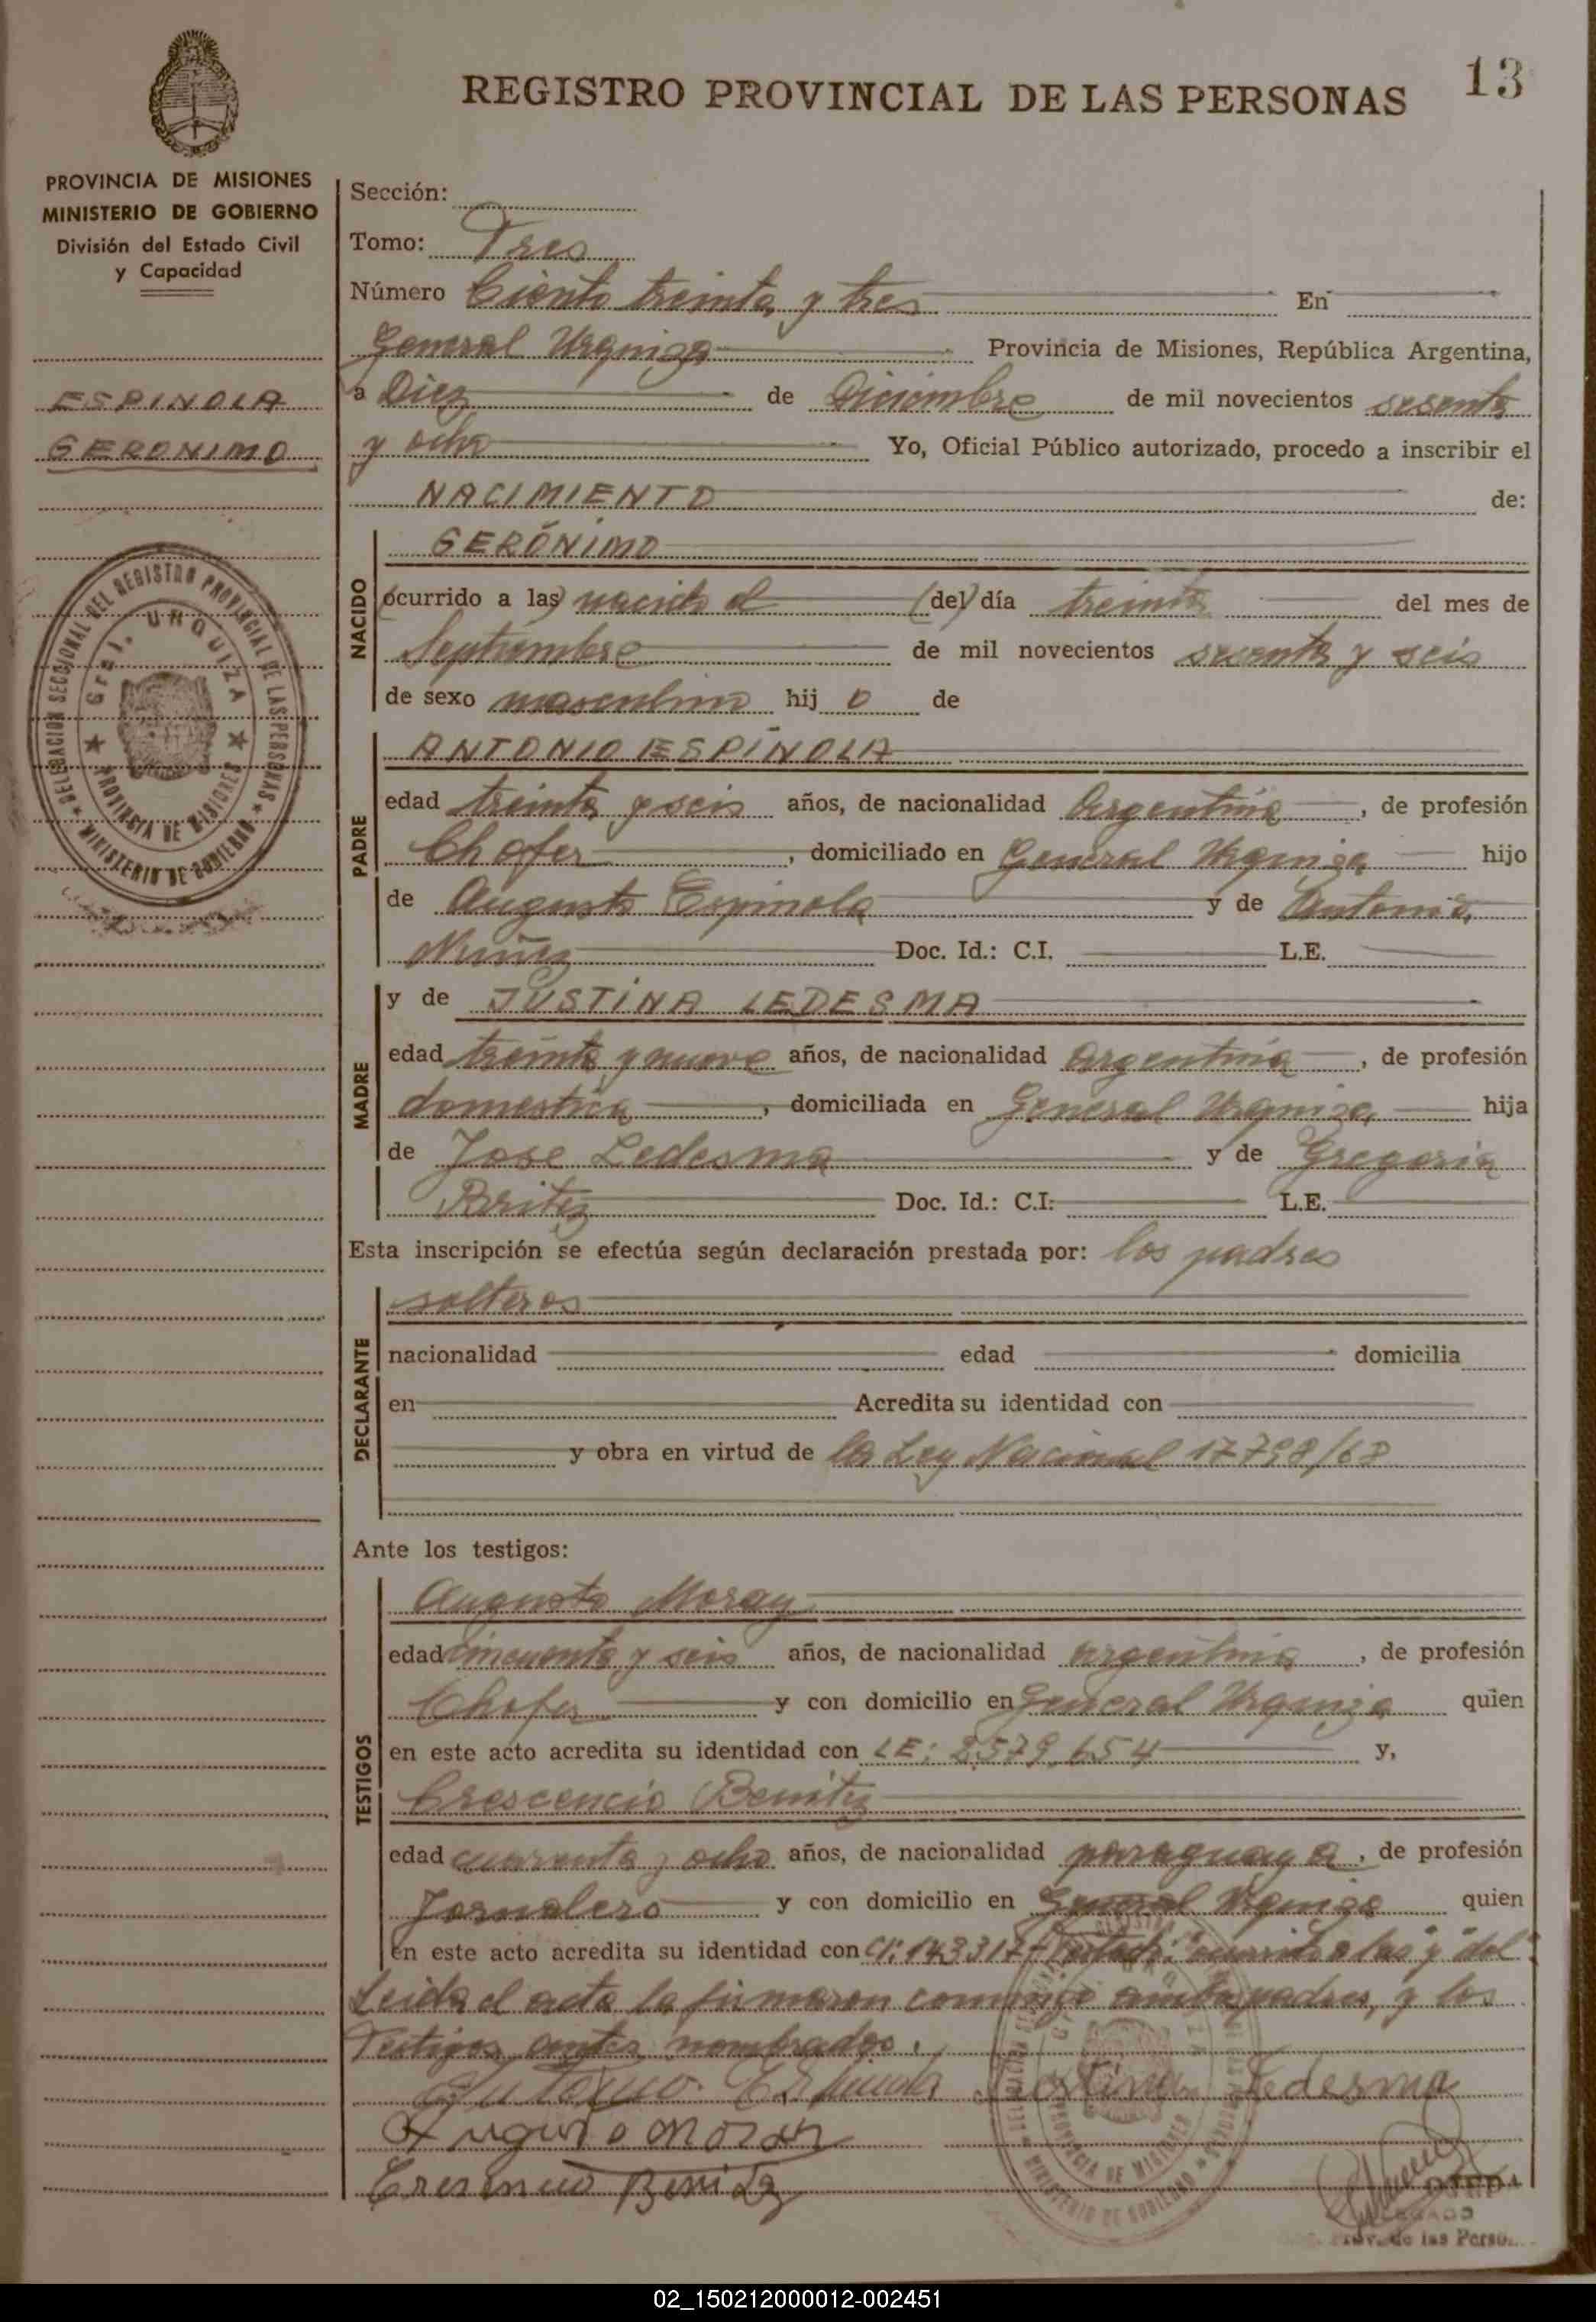 REGISTRO PROVINCIAL DE LAS PERSONAS
13
PROVINCIA DE MISIONES
MINISTERIO DE GOBIERNO
División del Estado Civil
y Capacidad
ESPINOLA
GERONIMO
DELEGACION SECCIONAL DEL REGISTRO PROVINCIAL DE LAS PERSONAS
Gral. URQUIZA
PROVINCIA DE MISIONES
MINISTERIO DE GOBIERNO
Sección:
Tomo: Tres
Número Ciento treinta y tres En
General Urquiza Provincia de Misiones, República Argentina,
a Diez de Diciembre de mil novecientos sesenta
y ocho Yo, Oficial Público autorizado, procedo a inscribir el
NACIMIENTO de:
NACIDO
GERÓNIMO
(ocurrido a las) nacido el (del) día treinta del mes de
Septiembre de mil novecientos sesenta y seis
de sexo masculino hij o de
PADRE
ANTONIO ESPÍNOLA
edad treinta y seis años, de nacionalidad Argentina, de profesión
Chofer, domiciliado en General Urquiza hijo
de Augusto Espinola y de Antonia
Nuñez Doc. Id.: C.I. L.E.
MADRE
y de JUSTINA LEDESMA
edad treinta y nueve años, de nacionalidad Argentina, de profesión
domestica, domiciliada en General Urquiza, hija
de Jose Ledesma y de Gregoria
Britez Doc. Id.: C.I: L.E.
Esta inscripción se efectúa según declaración prestada por: los padres
DECLARANTE
solteros
nacionalidad edad domicilia
en Acredita su identidad con
y obra en virtud de la Ley Nacional 17798/68
Ante los testigos:
TESTIGOS
Augusto Moray
edad cincuenta y seis años, de nacionalidad argentina, de profesión
Chofer y con domicilio en General Urquiza quien
en este acto acredita su identidad con LE: 2579.654 y,
Crescencio Benitez
edad cuarenta y ocho años, de nacionalidad paraguaya, de profesión
Jornalero y con domicilio en General Urquiza quien
en este acto acredita su identidad con CI: 143317 - Testado: "ocurrido a las" y "del"
Leida el acta la firmaron conmigo ambos padres, y los
Testigos antes nombrados.
Antonio Espinola Justina Ledesma
Augusto Moray
Benitez
PROVINCIA DE MISIONES
MINISTERIO DE GOBIERNO
OJEDA
DELEGADO
Prov. de las Perso
02_150212000012-002451